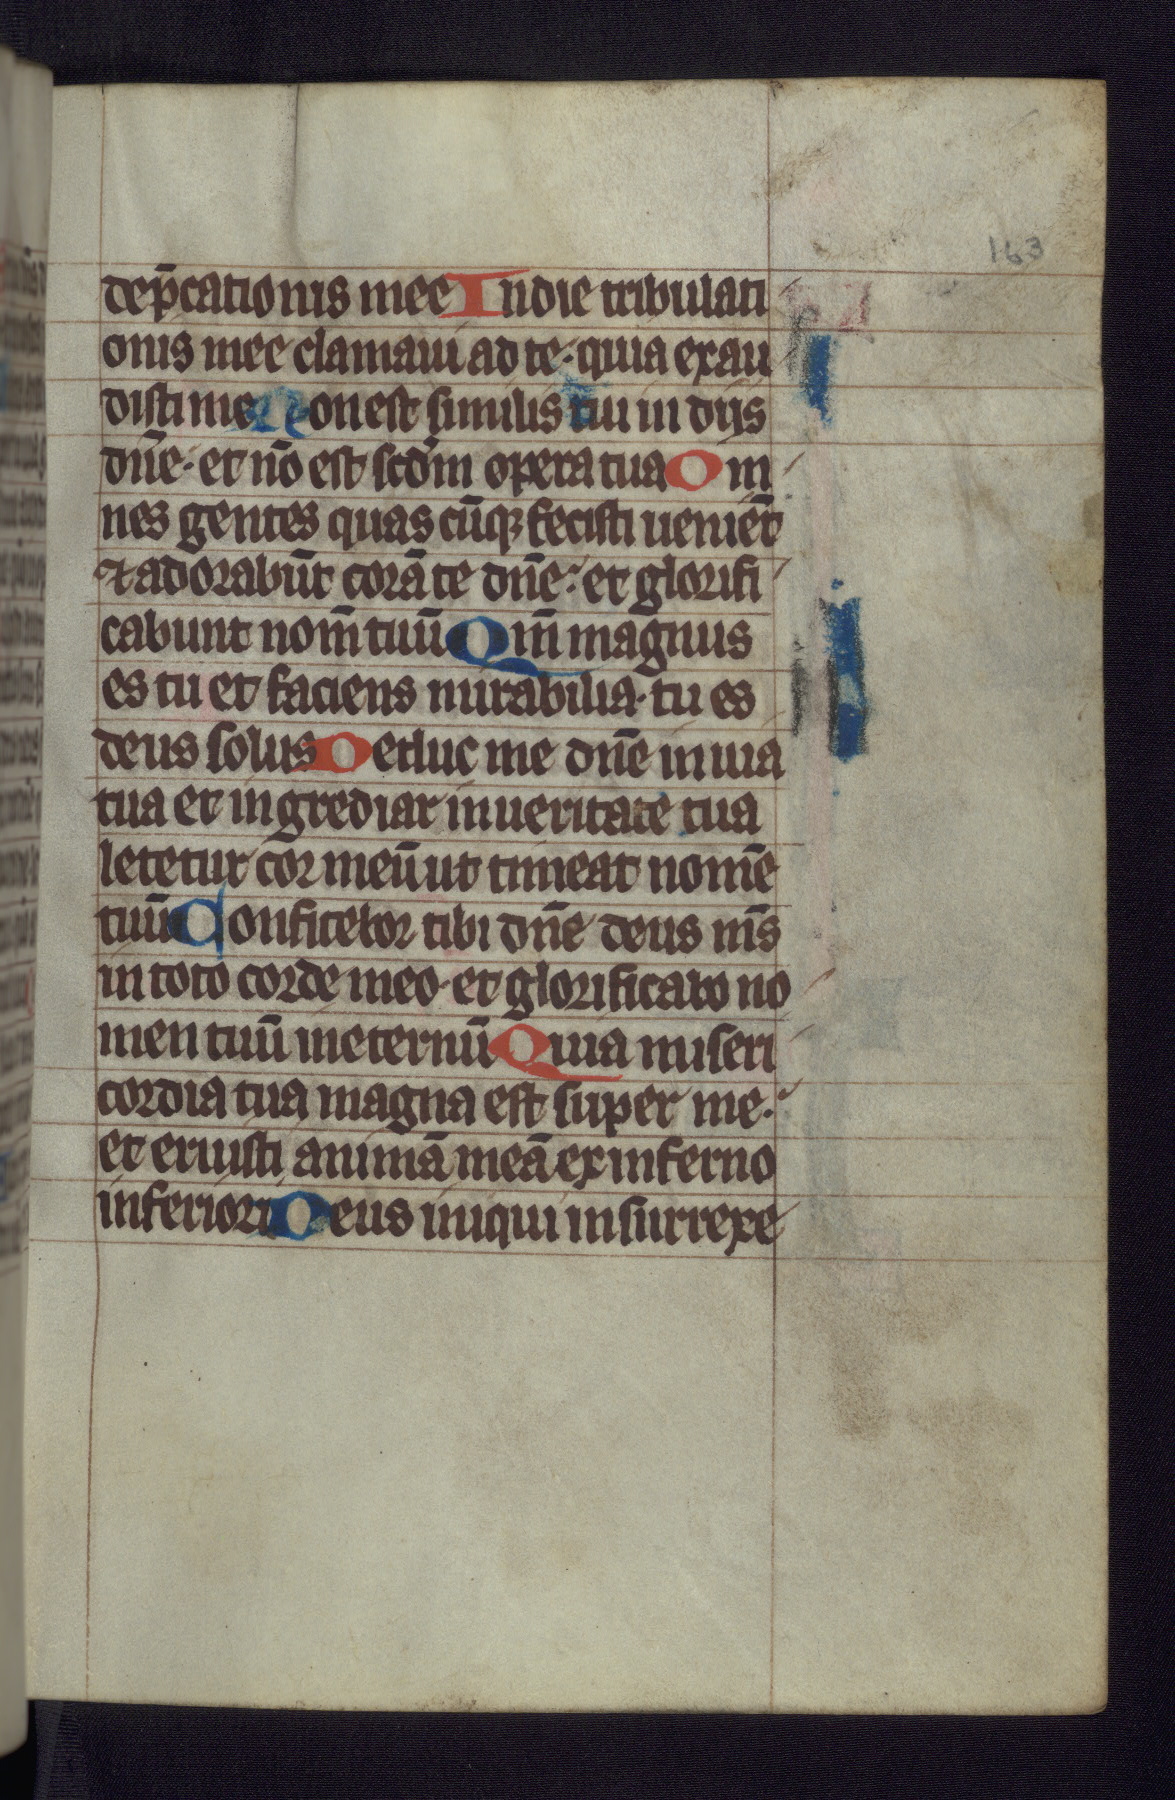 163
dep̄cationis mee In die tribulati
onis mee clamaui ad te· quia exau
disti me Non est similis tui in diis
dn̄e· et nō est scdm̄ opera tua Om
nes gentes quascūqꝫ fecisti ueniēt
⁊ adorabūt corā te dn̄e· et glorifi
cabunt nom̄ tuū Qm̄ magnus
es tu et faciens mirabilia· tu es
deus solus Deduc me dn̄e in uia
tua et ingrediar in ueritate tua
letetur cor meū ut timeat nomē
tuū Confitebor tibi dn̄e deus mēs
in toto corde meo· et glorificabo no
men tuū in eternū Quia miseri
cordia tua magna est super me·
et eruisti animā meā ex inferno
inferiori Deus iniqui insurrexe